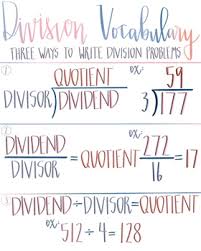 Division Vocabulary
THREE WAYS TO WRITE DIVISION PROBLEMS
1 QUOTIENT ex: 59
DIVISOR)DIVIDEND 3)177
2 DIVIDEND ex: 272
DIVISOR = QUOTIENT 16 = 17
3 DIVIDEND ÷ DIVISOR = QUOTIENT
ex: 512 ÷ 4 = 128